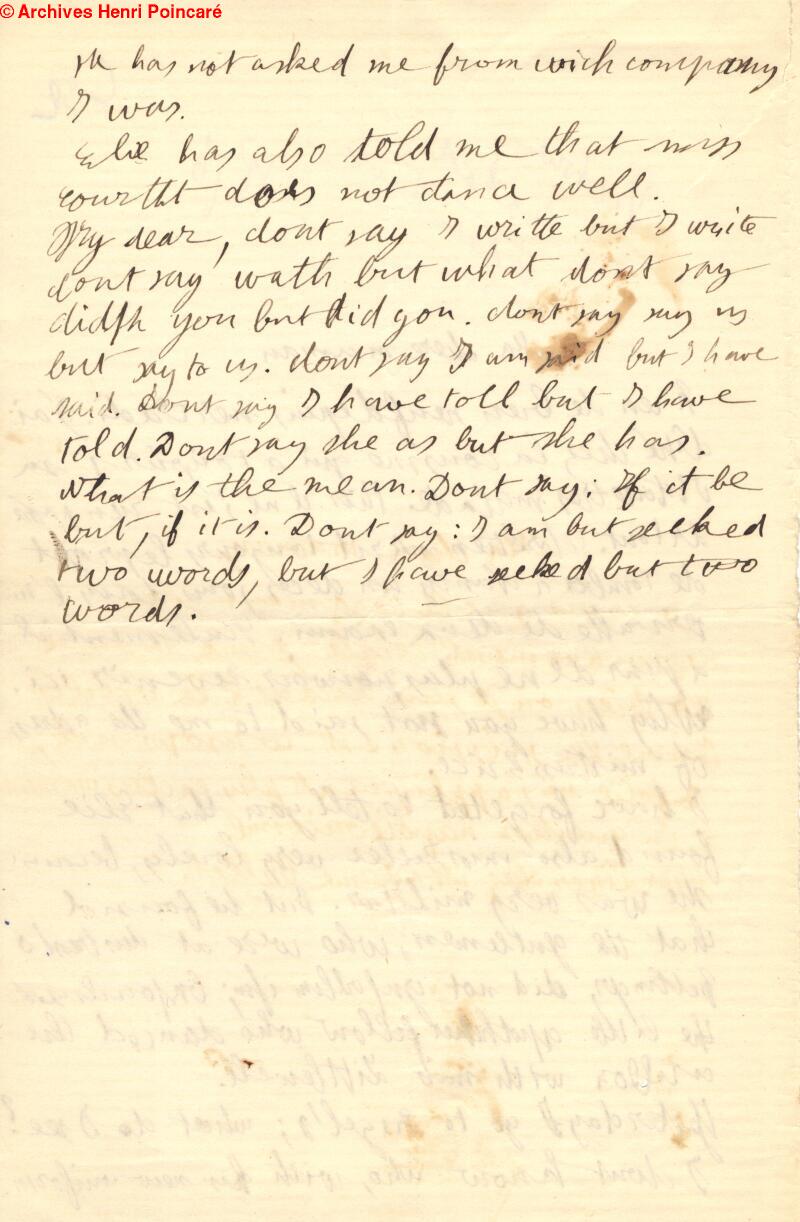 © Archives Henri Poincaré
He has not asked me from wich company
I was.
Elie has also told me that miss
courtht does not dance well.
My dear, dont say I writte but I write
dont say wath but what dont say
did you but did you. dont say say us
but say to us. dont say I am said but I have
said. Dont say I have toll but I have
told. Dont say she as but she has.
What is the mean. Dont say: If it be
but, if it is. Dont say: I am but seeked
two words, but I have seeked but two
words.